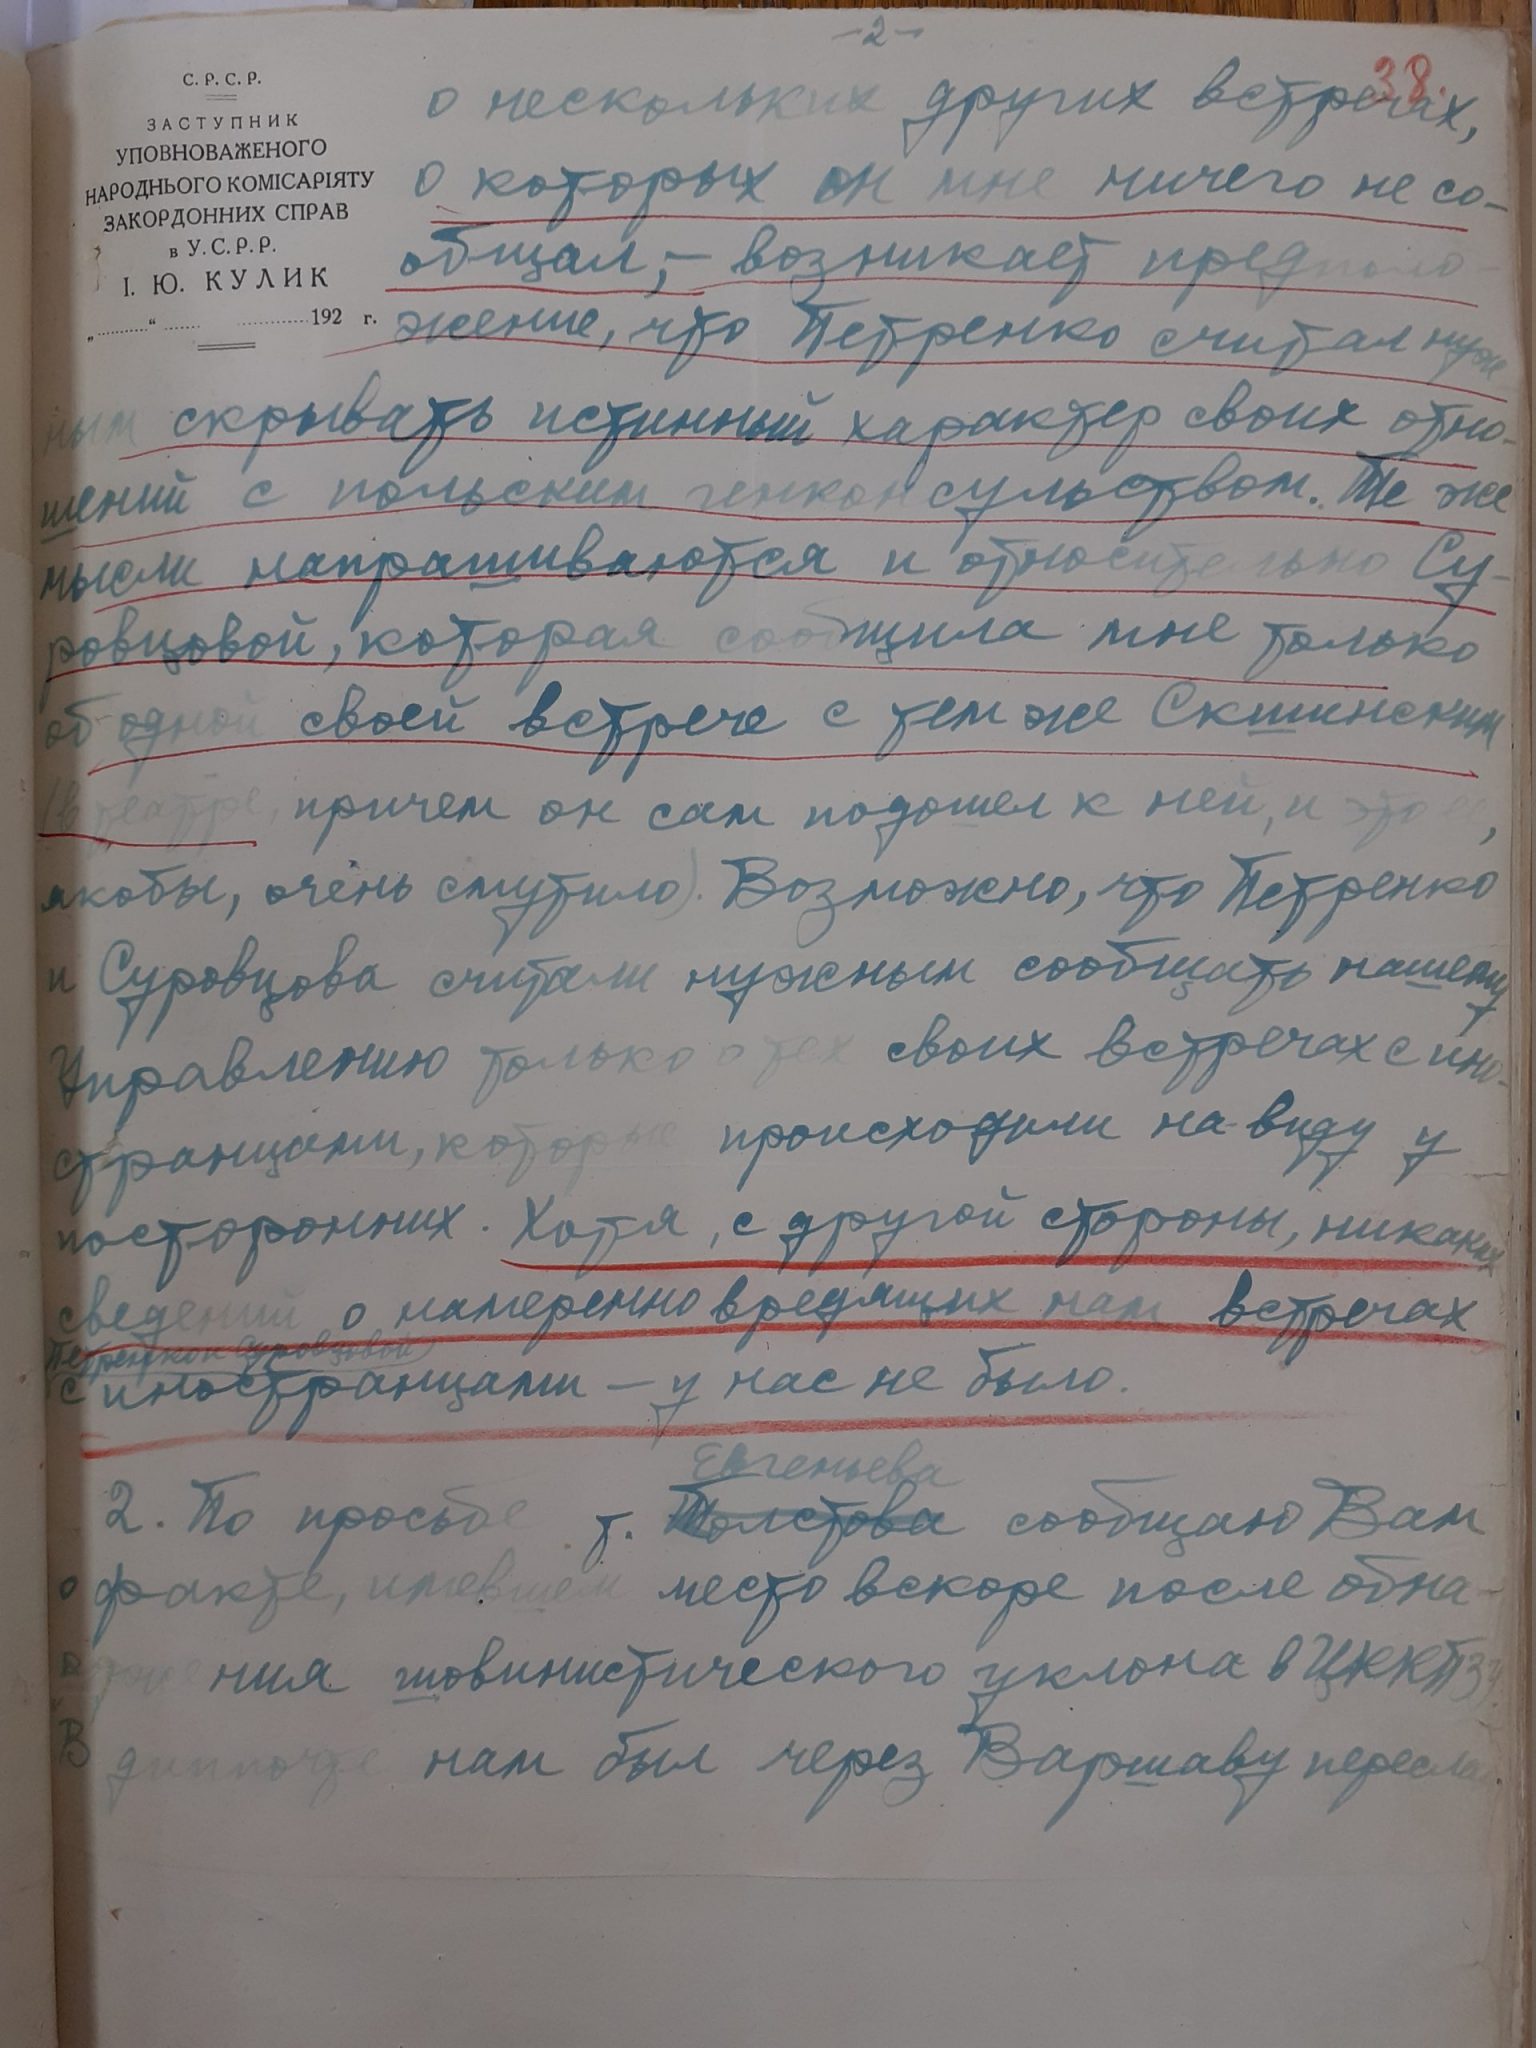 -2-
38.
С. Р. С. Р.
ЗАСТУПНИК
УПОВНОВАЖЕНОГО
НАРОДНЬОГО КОМІСАРІЯТУ
ЗАКОРДОННИХ СПРАВ
в У.С.Р.Р.
І. Ю. КУЛИК
„...........“ ....... ..............192 г.
о нескольких других встречах,
о которых он мне ничего не со-
общал, - возникает предполо-
жение, что Петренко считал нуж
ным скрывать истинный характер своих отно-
шений с польским генконсульством. Те же
мысли напрашиваются и относительно Су-
ровцовой, которая сообщила мне только
об одной своей встрече с тем же Скшинским
(в театре, причем он сам подошел к ней, и это ее,
якобы, очень смутило). Возможно, что Петренко
и Суровцова считали нужным сообщать нашему
Управлению только о тех своих встречах с ино-
странцами, которые происходили на виду у
посторонних. Хотя, с другой стороны, никаких
сведений о намеренно вредящих нам встречах
Петренко и Суровцовой
с иностранцами – у нас не было.
Евгеньева
2. По просьбе т. Толстова сообщаю Вам
о факте, имевшем место вскоре после обна-
ружения шовинистического уклона в ЦККПЗУ.
В диппочте нам был через Варшаву переслан